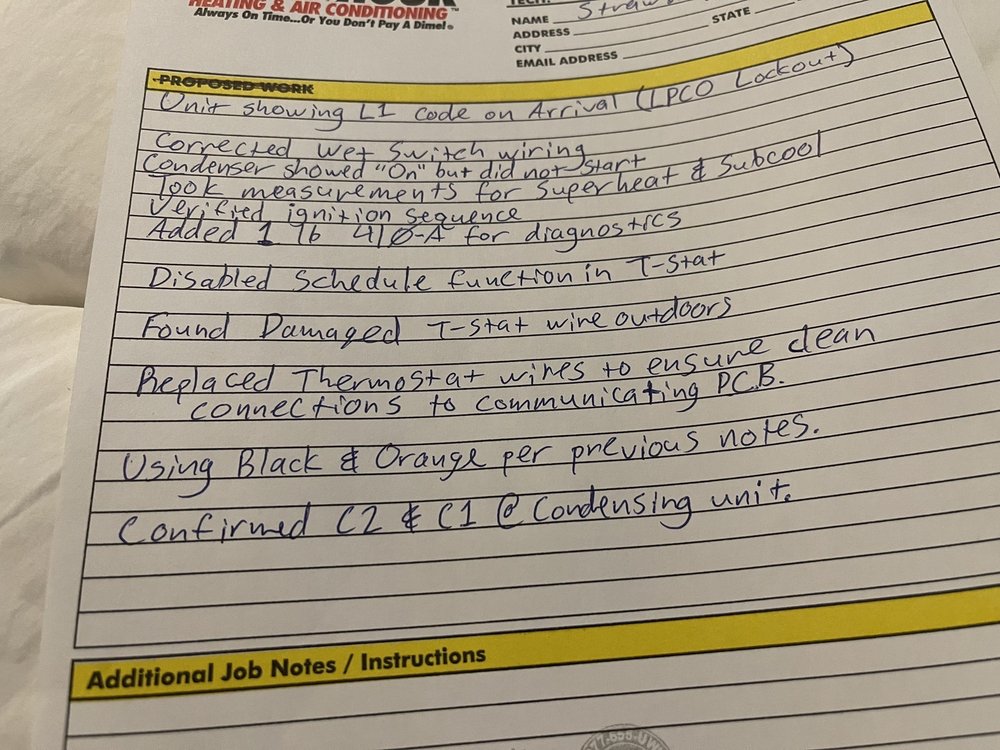 HEATING & AIR CONDITIONING™
Always On Time...Or You Don't Pay A Dime!®
NAME
ADDRESS
STATE
CITY
EMAIL ADDRESS
PROPOSED WORK
Unit showing L1 code on Arrival (LPCO Lockout)
Corrected Wet Switch wiring
Condenser showed "On" but did not start
Took measurements for Superheat & Subcool
Verified ignition sequence
Added 1 lb 410-A for diagnostics
Disabled Schedule function in T-Stat
Found Damaged T-Stat wire outdoors
Replaced Thermostat wires to ensure clean
connections to communicating P.C.B.
Using Black & Orange per previous notes.
Confirmed C2 & C1 @ Condensing unit.
Additional Job Notes / Instructions